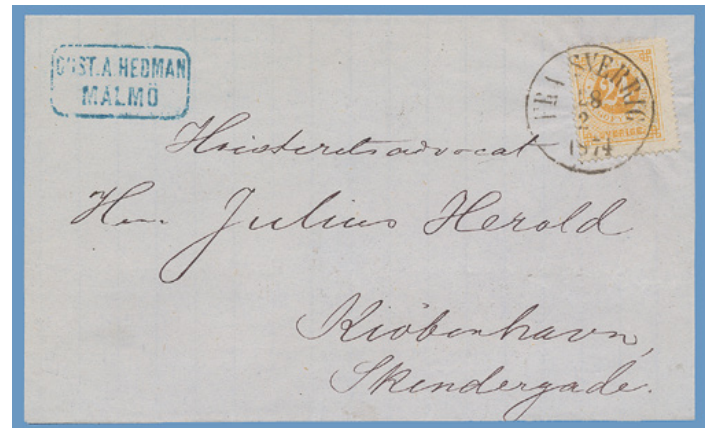 GUST. A. HEDMAN
MALMÖ
FRA SVERRIG
28
2
1874
SVERIGE
Høiesteretsadvocat
Herr Julius Herold
Kiöbenhavn,
Skindergade.